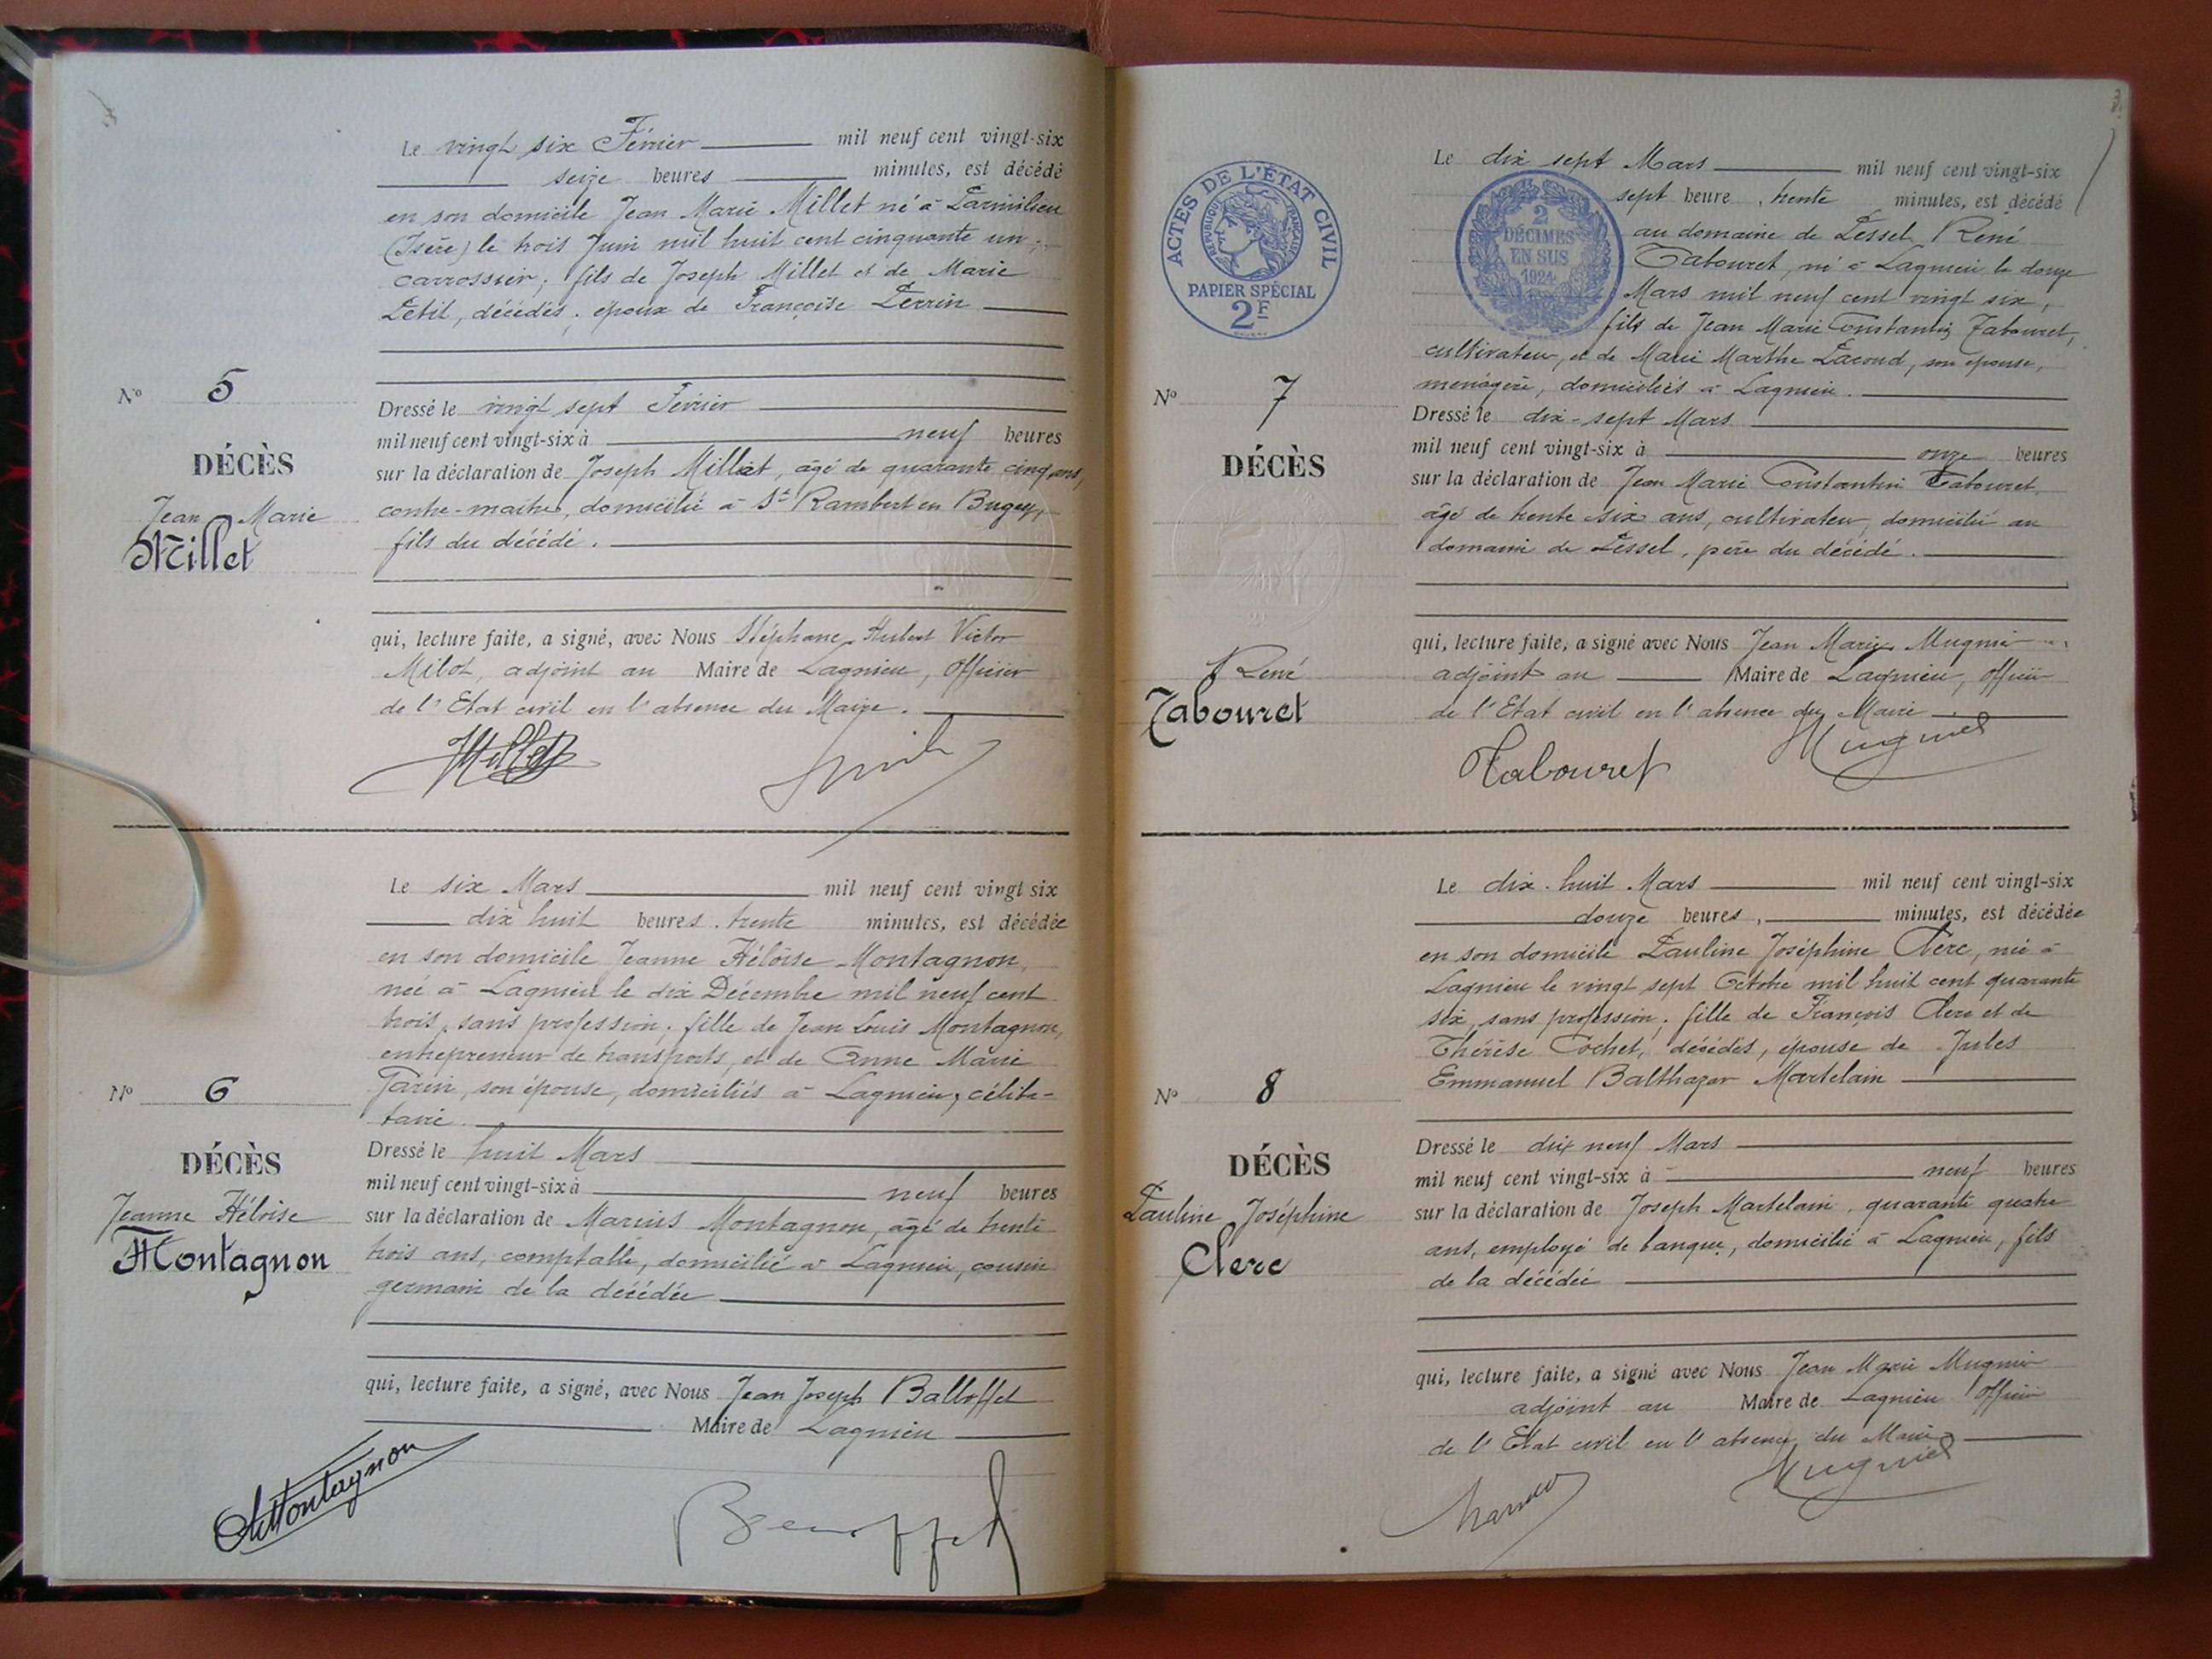 Le vingt six Février mil neuf cent vingt-six
seize heures minutes, est décédé
en son domicile Jean Marie Millet né à Parmilieu
(Isère) le trois Juin mil huit cent cinquante un,
carrossier; fils de Joseph Millet et de Marie
Petit, décédés; époux de Françoise Perrin
No 5
DÉCÈS
Jean Marie
Millet
Dressé le vingt sept Février
mil neuf cent vingt-six à neuf heures
sur la déclaration de Joseph Millet, âgé de quarante cinq ans,
contre-maître, domicilié à St Rambert en Bugey,
fils du décédé.
qui, lecture faite, a signé, avec Nous Stéphane Hubert Victor
Milot, adjoint au Maire de Lagnieu, Officier
de l'Etat civil en l'absence du Maire.
Millet
Le six Mars mil neuf cent vingt six
dix huit heures trente minutes, est décédée
en son domicile Jeanne Héloïse Montagnon,
née à Lagnieu le dix Décembre mil neuf cent
trois, sans profession; fille de Jean Louis Montagnon,
entrepreneur de transports, et de Anne Marie
Parin, son épouse, domiciliés à Lagnieu, céliba-
taire.
No 6
DÉCÈS
Jeanne Héloïse
Montagnon
Dressé le huit Mars
mil neuf cent vingt-six à neuf heures
sur la déclaration de Marius Montagnon, âgé de trente
trois ans, comptable, domicilié à Lagnieu, cousin
germain de la décédée
qui, lecture faite, a signé, avec Nous Jean Joseph Balloffet
Maire de Lagnieu
Montagnon
ACTES DE L'ÉTAT CIVIL
RÉPUBLIQUE FRANÇAISE
PAPIER SPÉCIAL
2F
2
DÉCIMES
EN SUS
1924
Le dix sept Mars mil neuf cent vingt-six
sept heure, trente minutes, est décédé
au domaine de Pessel René
Tabouret, né à Lagnieu le douze
Mars mil neuf cent vingt six,
fils de Jean Marie Constantin Tabouret,
cultivateur, et de Marie Marthe Lacond, son épouse,
ménagère, domiciliés à Lagnieu.
No 7
DÉCÈS
René
Tabouret
Dressé le dix-sept Mars
mil neuf cent vingt-six à onze heures
sur la déclaration de Jean Marie Constantin Tabouret,
âgé de trente six ans, cultivateur, domicilié au
domaine de Pessel, père du décédé.
qui, lecture faite, a signé avec Nous Jean Marie Mugnier
adjoint au Maire de Lagnieu, officier
de l'Etat civil en l'absence du Maire
Tabouret Mugnier
Le dix-huit Mars mil neuf cent vingt-six
douze heures, minutes, est décédée
en son domicile Pauline Joséphine Clerc, née à
Lagnieu le vingt sept Octobre mil huit cent quarante
six, sans profession; fille de François Clerc et de
Thérèse Cochet, décédés, épouse de Jules
Emmanuel Balthazar Martelain
No 8
DÉCÈS
Pauline Joséphine
Clerc
Dressé le dix neuf Mars
mil neuf cent vingt-six à neuf heures
sur la déclaration de Joseph Martelain, quarante quatre
ans, employé de banque, domicilié à Lagnieu, fils
de la décédée
qui, lecture faite, a signé avec Nous Jean Marie Mugnier
adjoint au Maire de Lagnieu Officier
de l'Etat civil en l'absence du Maire
Mugnier